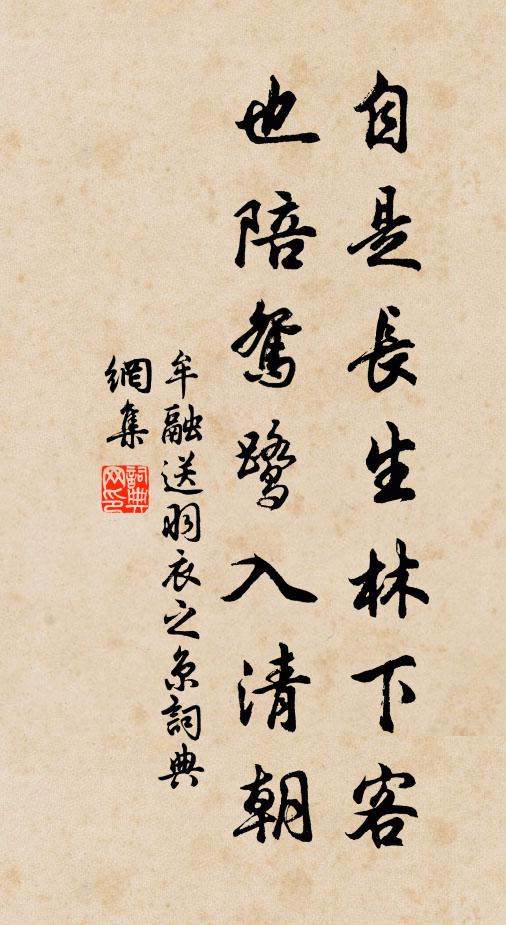 自是長生林下客
也陪鴛鷺入清朝
牟融送羽衣之京詞典
網集
詞典
网印